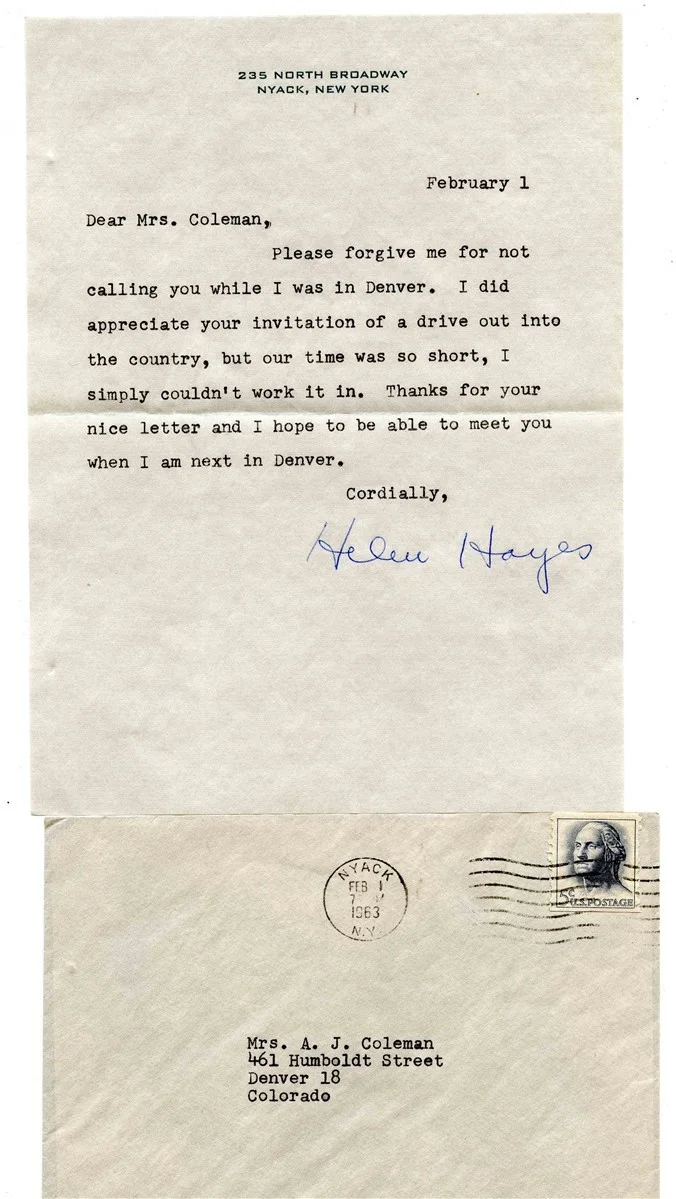 235 NORTH BROADWAY
NYACK, NEW YORK
February 1
Dear Mrs. Coleman,
Please forgive me for not
calling you while I was in Denver. I did
appreciate your invitation of a drive out into
the country, but our time was so short, I
simply couldn't work it in. Thanks for your
nice letter and I hope to be able to meet you
when I am next in Denver.
Cordially,
Helen Hayes
NYACK
FEB 1
1963
N.Y.
5¢
U.S. POSTAGE
Mrs. A. J. Coleman
461 Humboldt Street
Denver 18
Colorado